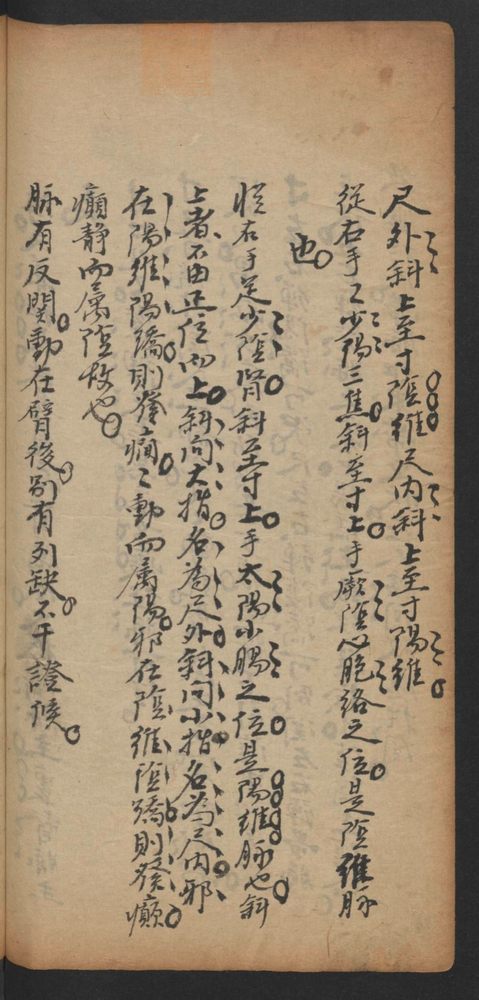 尺外斜上至寸陰維尺内斜上至寸陽維
從右手手少陽三焦斜至寸上手厥陰心胞絡之位是陰維脉
也
從右手足少陰腎斜至寸上手太陽小腸之位是陽維脉也斜
上者不由正位而上斜向大指名為尺外斜向小指名為尺内邪
在陽維陽蹻則發癇癇動而属陽邪在陰維陰蹻則發癲
癲静而属陰故也
脉有反関動在臂後别有列缺不干證候